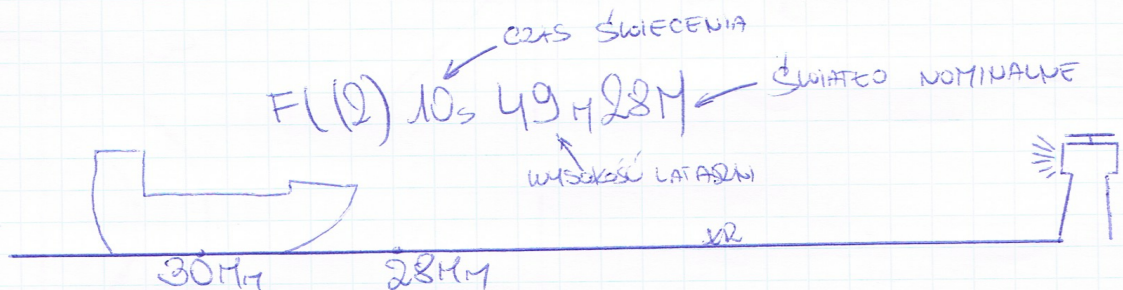 CZAS ŚWIECENIA
Fl (2) 10s 49m 28M
ŚWIATŁO NOMINALNE
WYSOKOŚĆ LATARNI
30Mm
28Mm